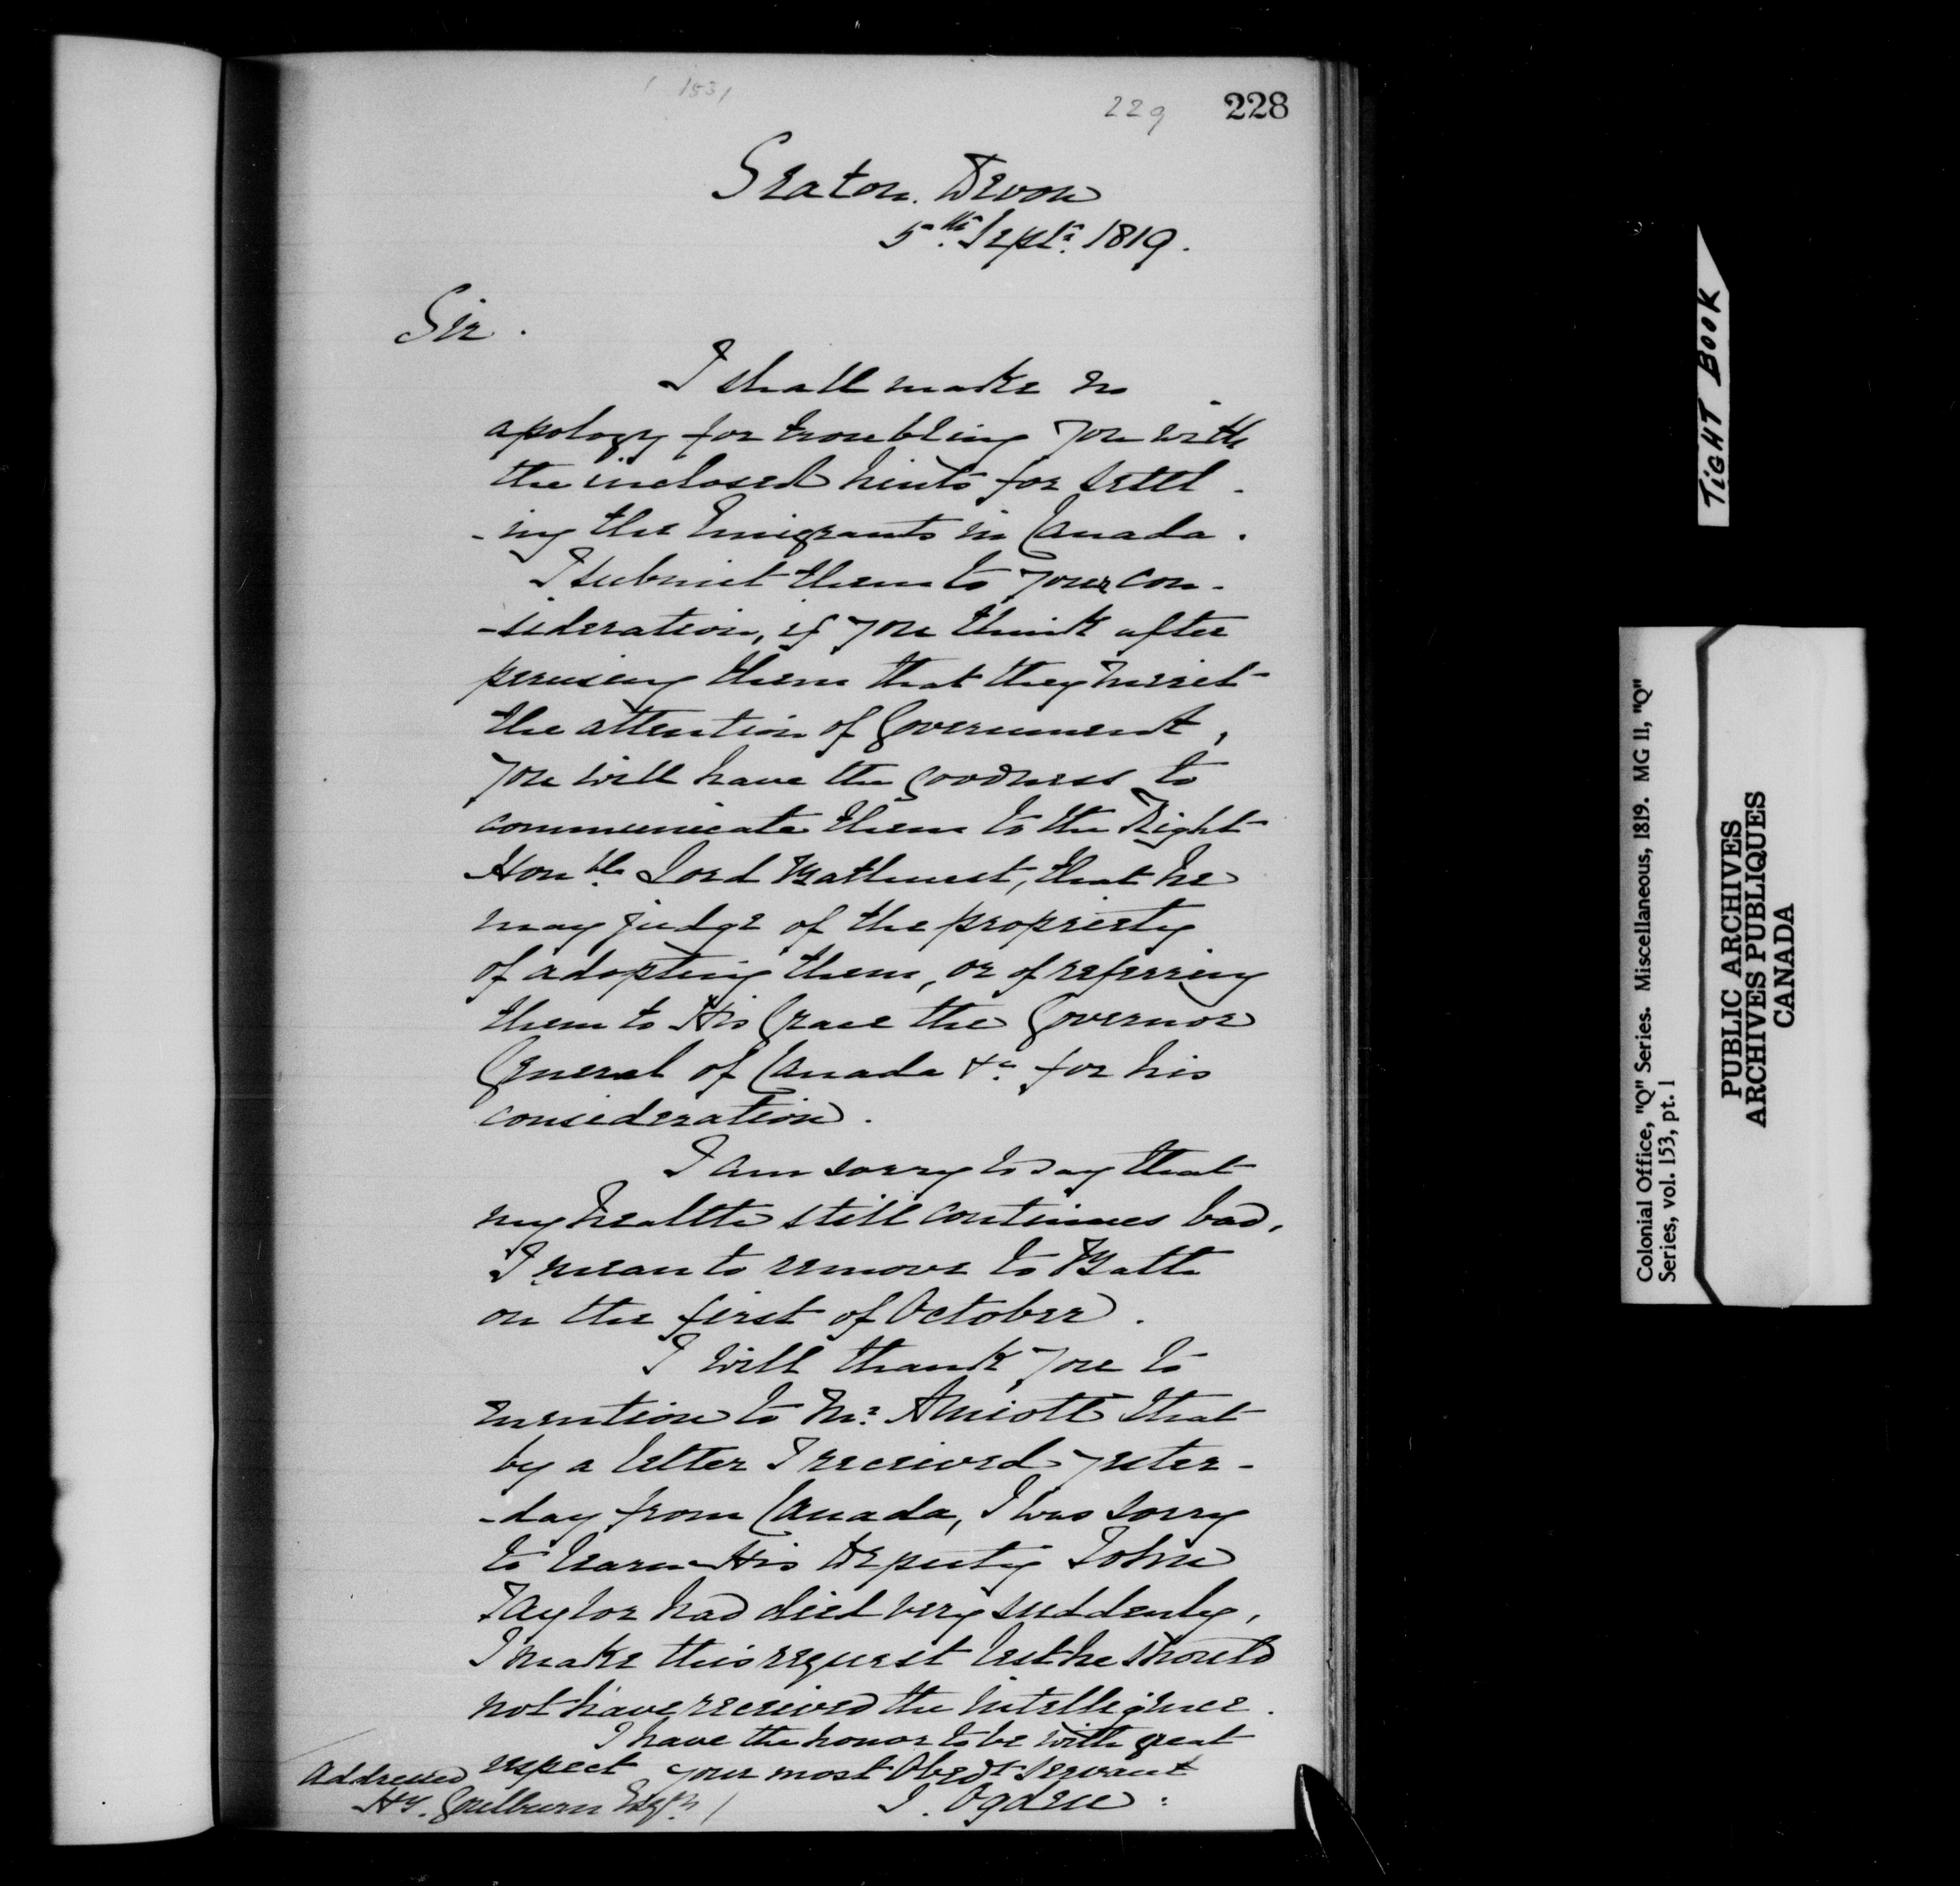 (153)
229 228
Seaton. Devon
5th Septr 1819.
Sir.
I shall make no
apology for troubling you with
the inclosed hints for settl-
-ing the Emigrants in Canada.
I submit them to your con-
-sideration, if you think after
perusing them that they merit
the attention of Government,
you will have the goodness to
communicate them to the Right
Honble Lord Bathurst, that he
may judge of the propriety
of adopting them, or of referring
them to His Grace the Governor
General of Canada &c for his
consideration.
I am sorry to say that
my health still continues bad,
I mean to remove to Bath
on the first of October.
I will thank you to
mention to Mr. Amiott that
by a letter I received yester-
-day from Canada, I was sorry
to learn His Deputy John
Taylor had died very suddenly,
I make this request lest he should
not have received the intelligence.
I have the honor to be with great
respect your most Obedt servant
J. Ogden.
Addressed
Hy. Goulburn Esqre
TIGHT BOOK
Colonial Office, "Q" Series. Miscellaneous, 1819. MG 11, "Q"
Series, vol. 153, pt. 1
PUBLIC ARCHIVES
ARCHIVES PUBLIQUES
CANADA